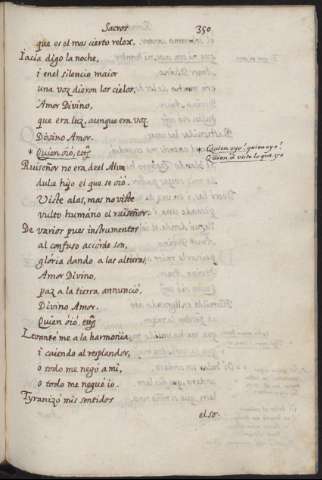 Sacros 350
que es el mas cierto relox.
Iacia digo la noche,
i en el silencio maior
una voz dieron los cielos,
Amor Divino,
que era luz, aunque era voz
Divino Amor.
* Quien oió, etc.
* Quien oyo? quien oyo?
Quien a visto lo que yo
Ruiseñor no era del Alva
dulce hijo el que se oió.
Viste alas, mas no viste
vulto humano el ruiseñor.
De varios pues instrumentos
al confuso accorde son,
gloria dando a las alturas,
Amor Divino,
paz a la tierra annunció,
Divino Amor.
Quien oió, etc.
Levanteme a la harmonia,
i caiendo al resplandor,
o todo me negó a mi,
o todo me negué io.
Tyranizó mis sentidos
el so-